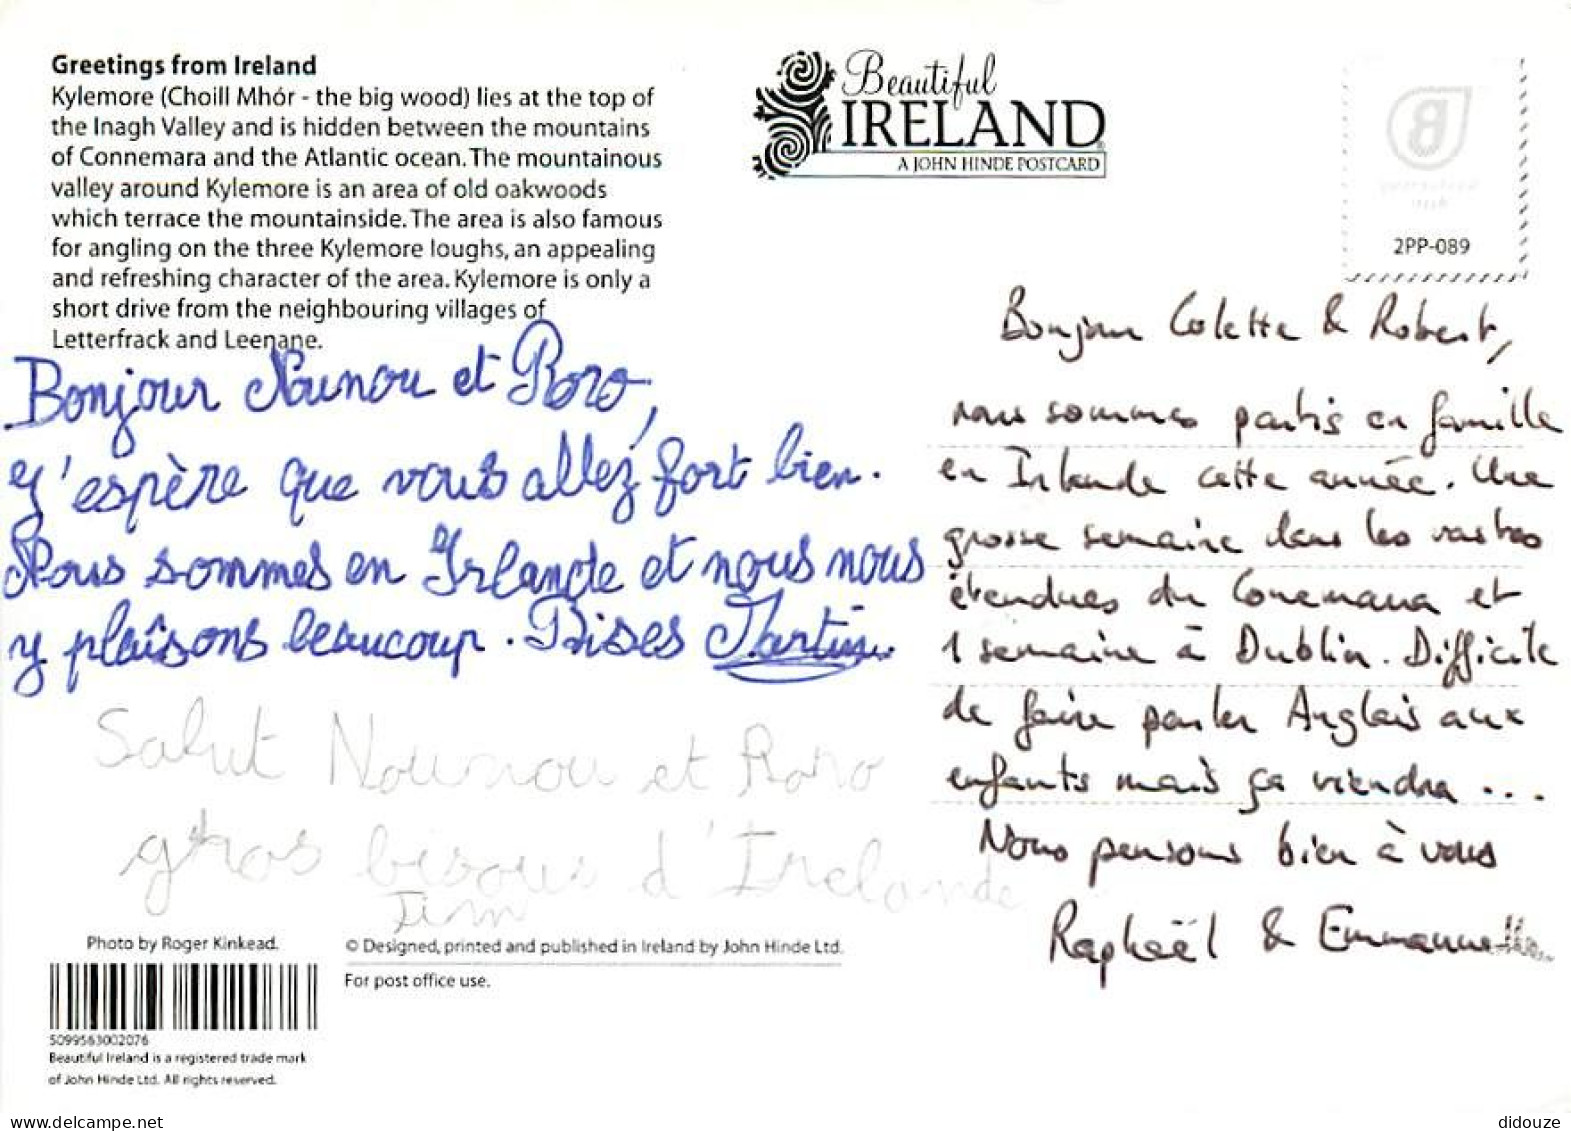 Greetings from Ireland
Kylemore (Choill Mhór - the big wood) lies at the top of
the Inagh Valley and is hidden between the mountains
of Connemara and the Atlantic ocean. The mountainous
valley around Kylemore is an area of old oakwoods
which terrace the mountainside. The area is also famous
for angling on the three Kylemore loughs, an appealing
and refreshing character of the area. Kylemore is only a
short drive from the neighbouring villages of
Letterfrack and Leenane.
Bonjour Nounou et Roro,
J'espère que vous allez fort bien.
Nous sommes en Irlande et nous nous
y plaîsons beaucoup. Bises Martin
Salut Nounou et Roro
gros bisous d'Irelande
Tim
Photo by Roger Kinkead.
5099563002076
Beautiful Ireland is a registered trade mark
of John Hinde Ltd. All rights reserved.
© Designed, printed and published in Ireland by John Hinde Ltd.
For post office use.
Beautiful
IRELAND
A JOHN HINDE POSTCARD
2PP-089
Bonjour Colette & Robert,
nous sommes partis en famille
en Irlande cette année. Une
grosse semaine dans les vastes
étendues du Conemara et
1 semaine à Dublin. Difficile
de faire parler Anglais aux
enfants mais ça viendra...
Nous pensons bien à vous
Raphaël & Emmanuelle
www.delcampe.net
didouze